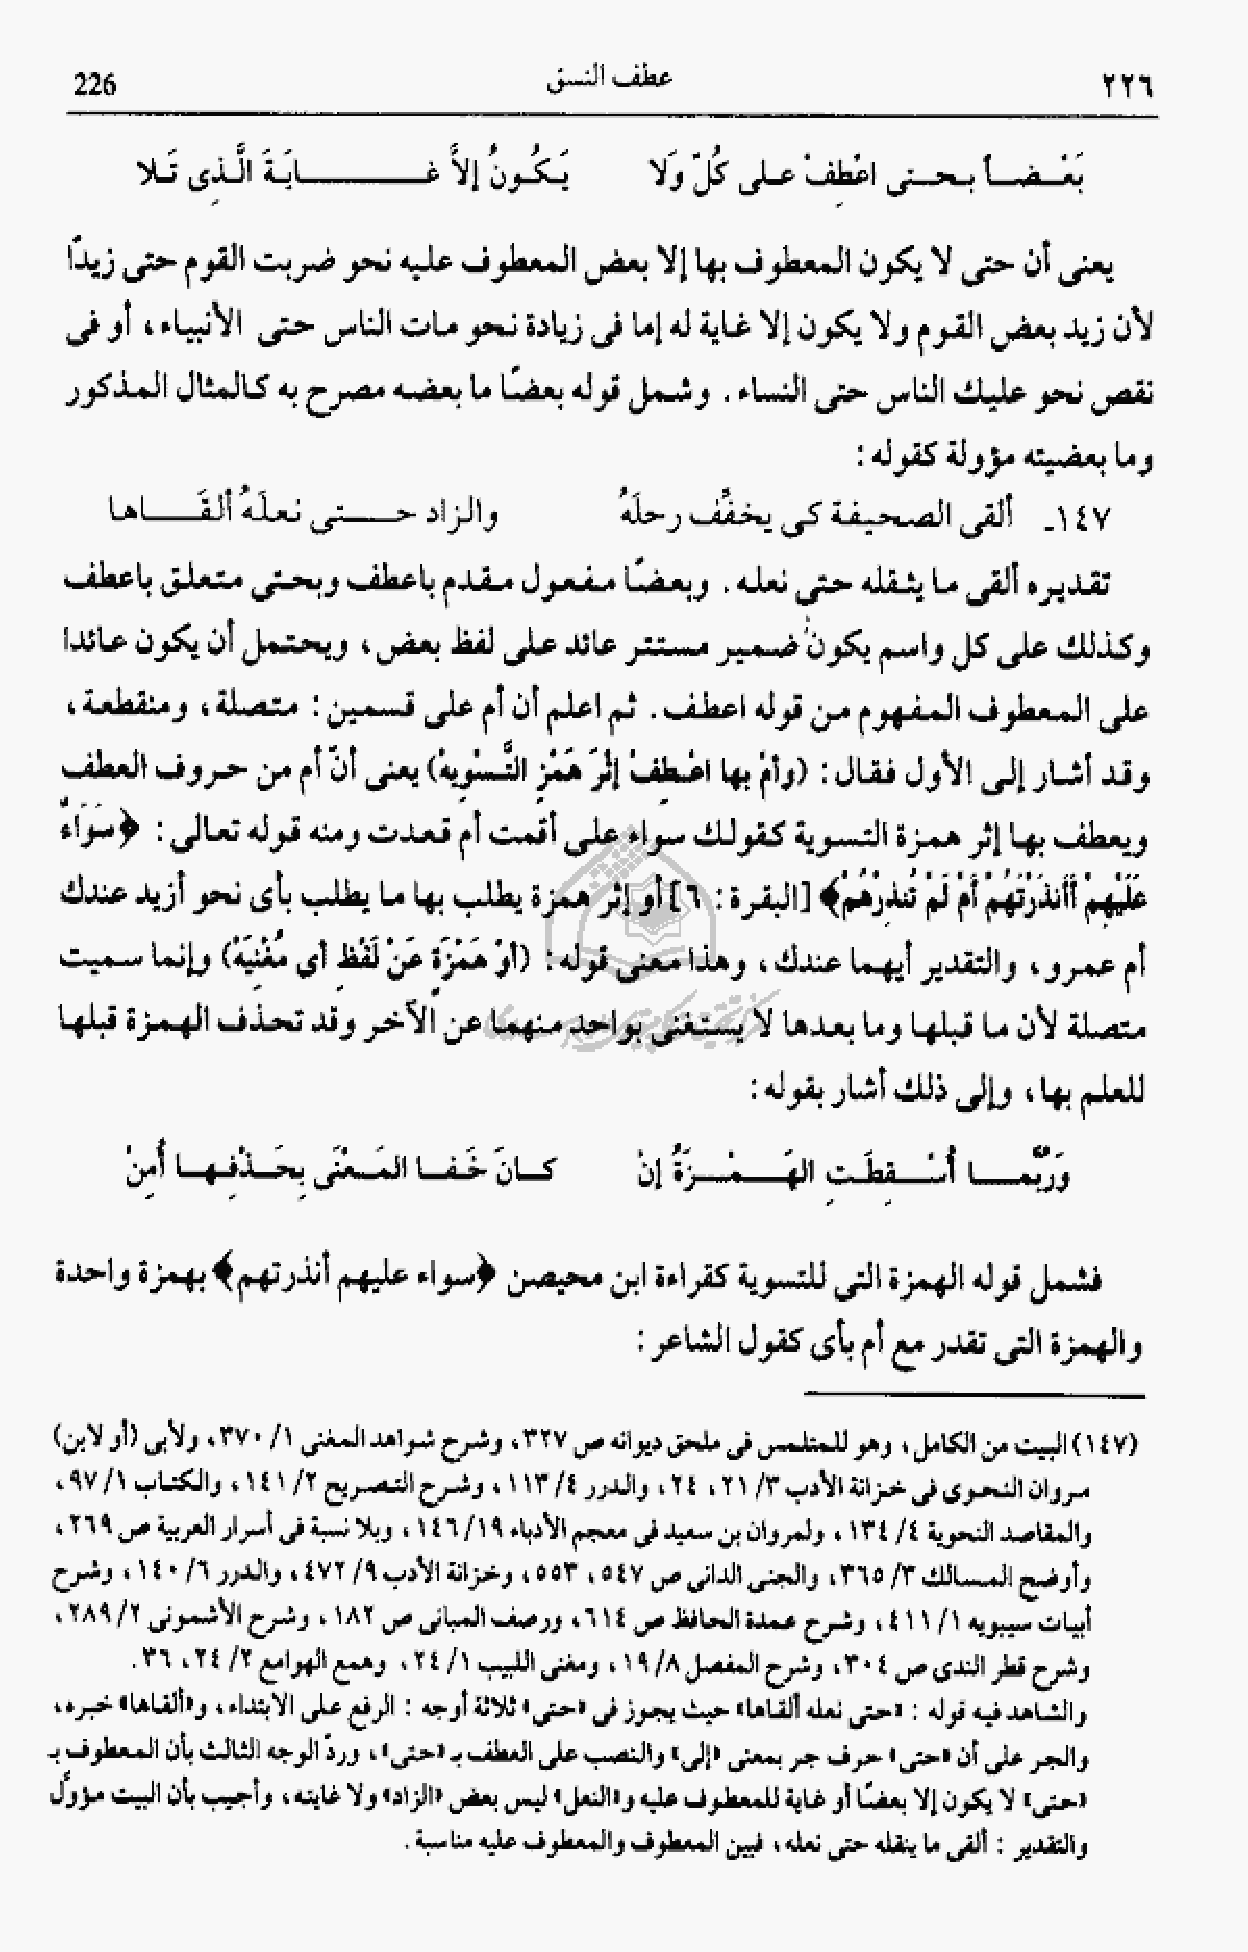 ٢٢٦ عطف النسق 226
بَعْضاً بحتى اعْطِفْ على كُلّ وَلَا يَكُونُ إلاَّ غَايَةَ الَّذِى تَلا
يعنى أن حتى لا يكون المعطوف بها إلا بعض المعطوف عليه نحو ضربت القوم حتى زيدًا
لأن زيد بعض القوم ولا يكون إلا غاية له إما فى زيادة نحو مات الناس حتى الأنبياء، أو فى
نقص نحو عليك الناس حتى النساء. وشمل قوله بعضًا ما بعضه مصرح به كالمثال المذكور
وما بعضيته مؤولة كقوله:
١٤٧ـ ألقى الصحيفة كى يخفِّف رحلَهُ والزاد حتى نعلَهُ ألقَاها
تقديره ألقى ما يثقله حتى نعله. وبعضًا مفعول مقدم باعطف وبحتى متعلق باعطف
وكذلك على كل واسم يكون ضمير مستتر عائد على لفظ بعض، ويحتمل أن يكون عائدا
على المعطوف المفهوم من قوله اعطف. ثم اعلم أن أم على قسمين: متصلة، ومنقطعة،
وقد أشار إلى الأول فقال: (وأمْ بها اعْطِفْ إثْرَ هَمْزِ التَّسْوِيهْ) يعنى أنّ أم من حروف العطف
ويعطف بها إثر همزة التسوية كقولك سواء على أقمت أم قعدت ومنه قوله تعالى: ﴿سَوَاءٌ
عَلَيْهِمْ أَأَنذَرْتَهُمْ أَمْ لَمْ تُنذِرْهُمْ﴾ [البقرة: ٦] أو إثر همزة يطلب بها ما يطلب بأى نحو أزيد عندك
أم عمرو، والتقدير أيهما عندك، وهذا معنى قوله: (أوْ هَمْزَةٍ عَنْ لَفْظِ أى مُغْنِيَهْ) وإنما سميت
متصلة لأن ما قبلها وما بعدها لا يستغنى بواحد منهما عن الآخر وقد تحذف الهمزة قبلها
للعلم بها، وإلى ذلك أشار بقوله:
وَرُبَّمَا أُسْقِطَتِ الهَمْزَةُ إنْ كانَ خَفا المَعْنَى بِحَذْفِها أُمِنْ
فشمل قوله الهمزة التى للتسوية كقراءة ابن محيصن ﴿سواء عليهم أنذرتهم﴾ بهمزة واحدة
والهمزة التى تقدر مع أم بأى كقول الشاعر:
(١٤٧) البيت من الكامل، وهو للمتلمس فى ملحق ديوانه ص ٣٢٧، وشرح شواهد المغنى ١/ ٣٧٠، ولأبى (أو لابن)
مروان النحوى فى خزانة الأدب ٣/ ٢١، ٢٤، والدرر ٤/ ١١٣، وشرح التصريح ٢/ ١٤١، والكتاب ١/ ٩٧،
والمقاصد النحوية ٤/ ١٣٤، ولمروان بن سعيد فى معجم الأدباء ١٩/ ١٤٦، وبلا نسبة فى أسرار العربية ص ٢٦٩،
وأوضح المسالك ٣/ ٣٦٥، والجنى الدانى ص ٥٤٧، ٥٥٣، وخزانة الأدب ٩/ ٤٧٢، والدرر ٦/ ١٤٠، وشرح
أبيات سيبويه ١/ ٤١١، وشرح عمدة الحافظ ص ٦١٤، ورصف المبانى ص ١٨٢، وشرح الأشمونى ٢/ ٢٨٩،
وشرح قطر الندى ص ٣٠٤، وشرح المفصل ٨/ ١٩، ومغنى اللبيب ١/ ٢٤، وهمع الهوامع ٢/ ٢٤، ٣٦.
والشاهد فيه قوله: «حتى نعله ألقاها» حيث يجوز فى «حتى» ثلاثة أوجه: الرفع على الابتداء، و«ألقاها» خبره،
والجر على أن «حتى» حرف جر بمعنى «إلى» والنصب على العطف بـ «حتى»، وردّ الوجه الثالث بأن المعطوف بـ
«حتى» لا يكون إلا بعضًا أو غاية للمعطوف عليه و«النعل» ليس بعض «الزاد» ولا غايته، وأجيب بأن البيت مؤوّل
والتقدير: ألقى ما يثقله حتى نعله، فبين المعطوف والمعطوف عليه مناسبة.